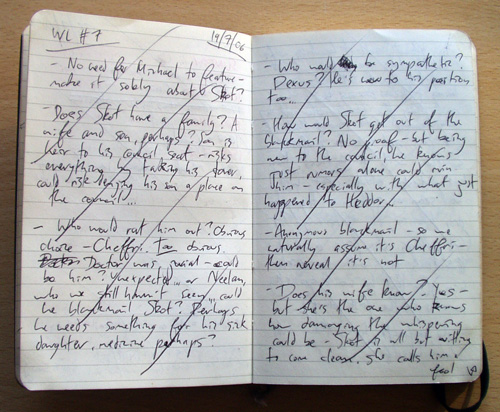 WL #7
19/7/06
- No need for Michael to feature -
make it solely about Sket?
- Does Sket have a family? A
wife and son, perhaps? Son is
heir to his council seat - risks
everything by taking his power,
could risk denying his son a place on
the council...
- Who would rat him out? Obvious
choice - Cheffri. Too obvious.
Doctor was weird - could
be him? Unexpected... or Neelan,
who we still haven't seen... could
he blackmail Sket? Perhaps
he needs something for his sick
daughter, medicine perhaps?
- Who would be sympathetic?
Dexus? He's new to his position
too...
- How would Sket get out of the
blackmail? No proof - but being
new to the council he knows
just rumors alone could ruin
him - especially with what just
happened to Heddor...
- Anonymous blackmail - so we
naturally assume it's Cheffri -
then reveal it's not
- Does his wife know? Yes -
but she's the one who knows
how damaging the whispering
could be - Sket is all but willing
to come clean, she calls him a
fool